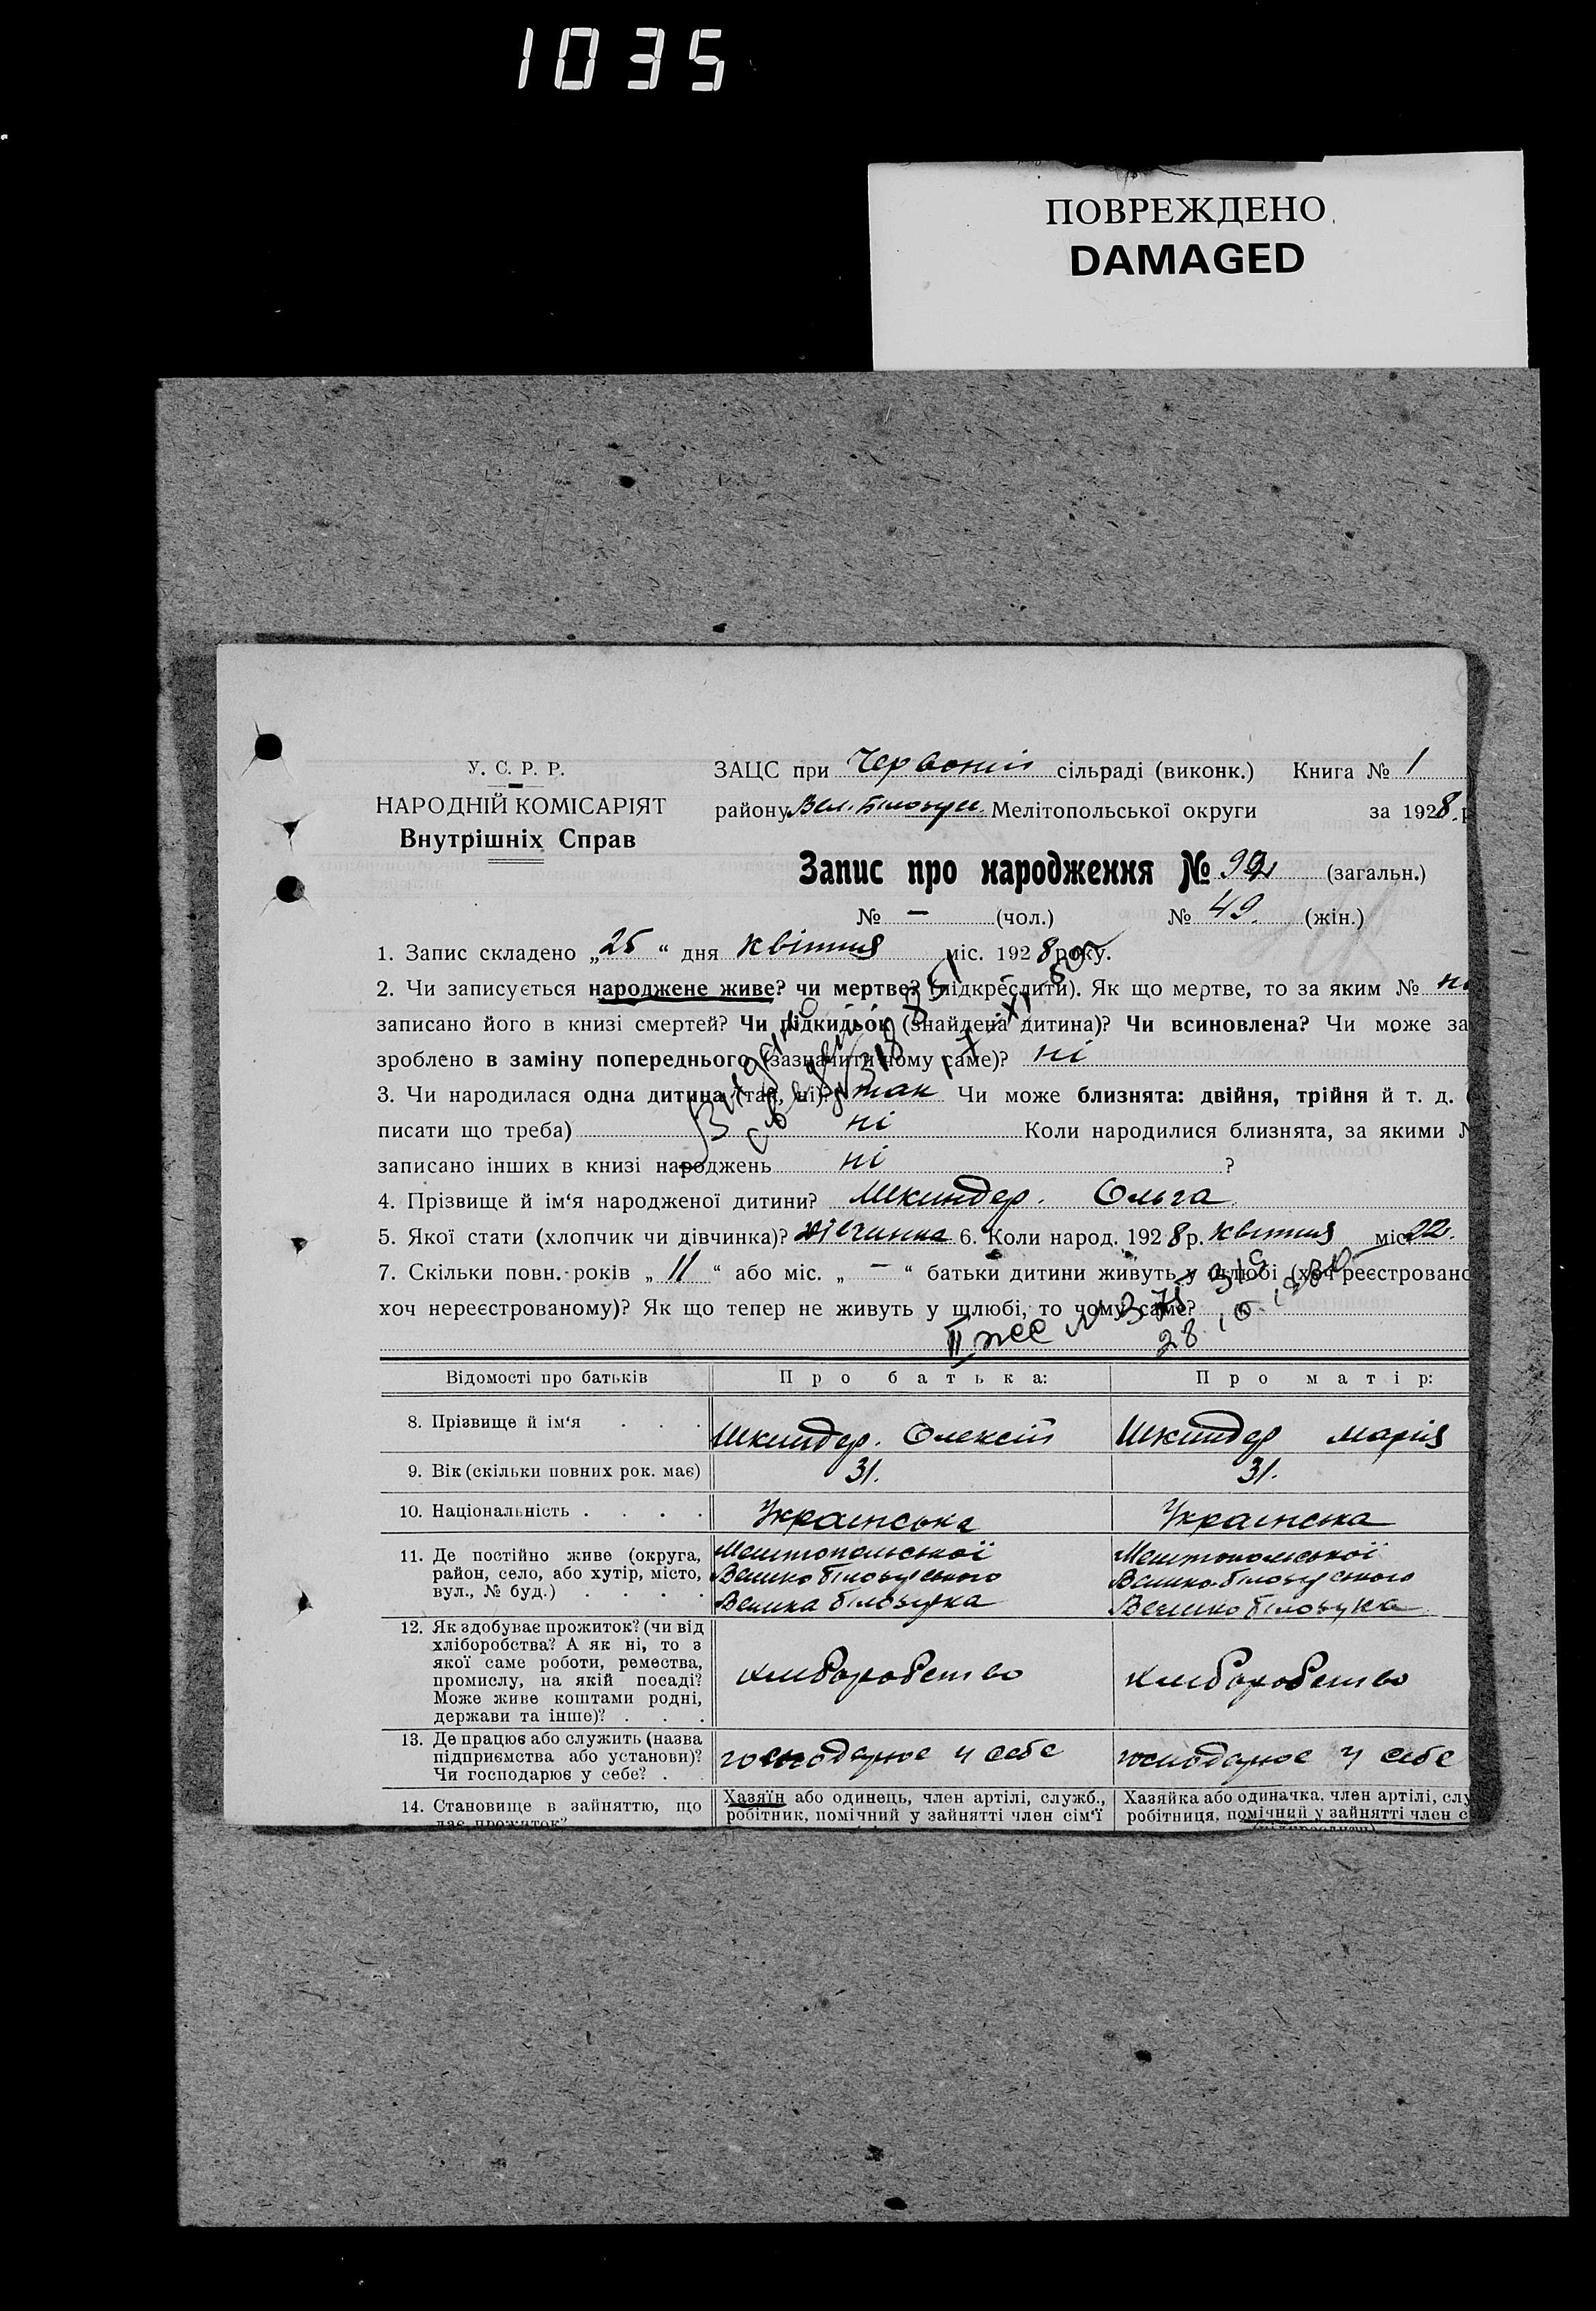 1035
ПОВРЕЖДЕНО
DAMAGED
У. С. Р. Р.
НАРОДНІЙ КОМІСАРІЯТ
Внутрішніх Справ
ЗАЦС при Червоній сільраді (виконк.) Книга № 1
району Вел. Білозір. Мелітопольської округи за 1928 р
Запис про народження № 92 (загальн.)
№ — (чол.) № 49. (жін.)
1. Запис складено „25“ дня квітня міс. 1928 року.
2. Чи записується народжене живе? чи мертве? (підкреслити). Як що мертве, то за яким №
записано його в книзі смертей? Чи підкидьок (знайдена дитина)? Чи всиновлена? Чи може за
зроблено в заміну попереднього (зазначити чому саме)? ні
3. Чи народилася одна дитина (так, ні)? так Чи може близнята: двійня, трійня й т. д.
писати що треба) ні Коли народилися близнята, за якими
записано інших в книзі народжень ні ?
4. Прізвище й ім‘я народженої дитини? Шкиндер. Ольга
5. Якої стати (хлопчик чи дівчинка)? дівчинка 6. Коли народ. 1928 р. квітня міс. 22.
7. Скільки повн. років „11“ або міс. „—“ батьки дитини живуть у шлюбі (хоч реєстровано
хоч нереєстрованому)? Як що тепер не живуть у шлюбі, то чому саме?
Відомості про батьків Про батька: Про матір:
8. Прізвище й ім‘я . . . Шкиндер. Олексій Шкиндер Марія
9. Вік (скільки повних рок. має) 31. 31.
10. Національність . . . . Українська Українська
11. Де постійно живе (округа, Мелітопольської Мелітопольської
район, село, або хутір, місто, Велико Білозірського Велико-Білозірського
вул., № буд.) . . . . Велика Білозірка Велико Білозірка
12. Як здобуває прожиток? (чи від
хліборобства? А як ні, то з
якої саме роботи, ремества,
промислу, на якій посаді? хліборобство хліборобство
Може живе коштами родні,
держави та інше)? . . .
13. Де працює або служить (назва
підприємства або установи)? господарює у себе господарює у себе
Чи господарює у себе? .
14. Становище в зайняттю, що Хазяїн або одинець, член артілі, служб., Хазяйка або одиначка, член артілі, слу
дає прожиток? робітник, помічний у зайнятті член сім‘ї робітниця, помічний у зайнятті член с